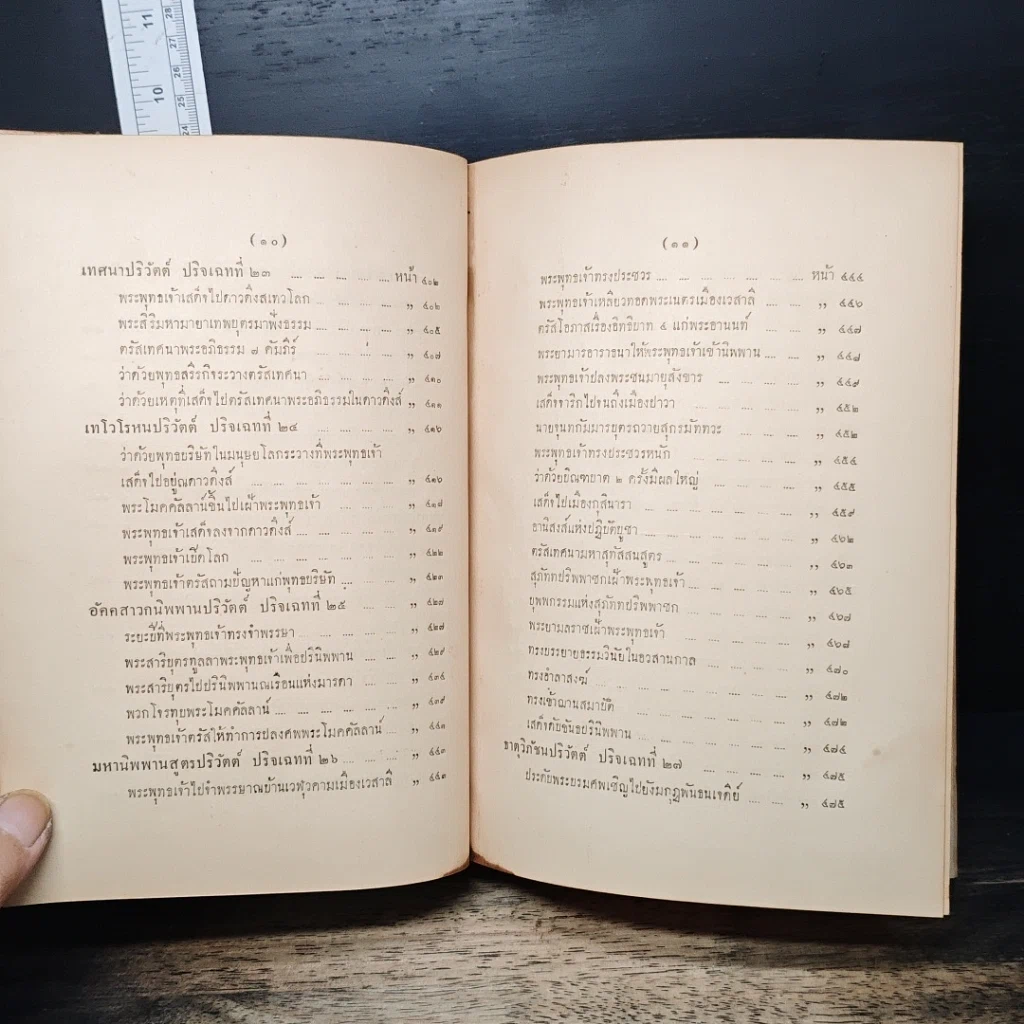 11
28
27
26
10
25
24
(๑๐)
เทศนาปริวัตต์ ปริจเฉทที่ ๒๓ .... .... .... .... .... หน้า ๔๐๒
พระพุทธเจ้าเสด็จไปดาวดึงสเทวโลก .... .... .... .... ,, ๔๐๒
พระสิริมหามายาเทพยุตรมาฟังธรรม .... .... .... .... ,, ๔๐๕
ตรัสเทศนาพระอภิธรรม ๗ คัมภีร์ .... .... .... ,, ๔๐๗
ว่าด้วยพุทธสรีรกิจระวางตรัสเทศนา .... .... .... .... ,, ๔๑๐
ว่าด้วยเหตุที่เสด็จไปตรัสเทศนาพระอภิธรรมในดาวดึงส์ ,, ๔๑๑
เทโวโรหนปริวัตต์ ปริจเฉทที่ ๒๔ .... .... .... .... ,, ๔๑๖
ว่าด้วยพุทธบริษัทในมนุษยโลกระวางที่พระพุทธเจ้า
เสด็จไปอยู่ณดาวดึงส์ .... .... .... .... .... ,, ๔๑๖
พระโมคคัลลาน์ขึ้นไปเฝ้าพระพุทธเจ้า .... .... .... ,, ๔๑๗
พระพุทธเจ้าเสด็จลงจากดาวดึงส์ .... .... .... .... ,, ๔๑๙
พระพุทธเจ้าเปิดโลก .... .... .... .... .... ,, ๔๒๒
พระพุทธเจ้าตรัสถามปัญหาแก่พุทธบริษัท .... .... .... ,, ๔๒๓
อัคคสาวกนิพพานปริวัตต์ ปริจเฉทที่ ๒๕ .... .... ,, ๔๒๗
ระยะปีที่พระพุทธเจ้าทรงจำพรรษา .... .... .... .... ,, ๔๒๗
พระสาริบุตรทูลลาพระพุทธเจ้าเพื่อปรินิพพาน .... .... ,, ๔๒๙
พระสาริบุตรไปปรินิพพานณเรือนแห่งมารดา .... .... ,, ๔๓๔
พวกโจรทุบพระโมคคัลลาน์ .... .... .... .... .... ,, ๔๓๙
พระพุทธเจ้าตรัสให้ทำการปลงศพพระโมคคัลลาน์ .... ,, ๔๔๑
มหานิพพานสูตรปริวัตต์ ปริจเฉทที่ ๒๖ .... .... ,, ๔๔๓
พระพุทธเจ้าไปจำพรรษาณบ้านเวฬุวคามเมืองเวสาลี ,, ๔๔๓
(๑๑)
พระพุทธเจ้าทรงประชวร .... .... .... .... .... .... หน้า ๔๔๔
พระพุทธเจ้าเหลียวทอดพระเนตรเมืองเวสาลี .... .... ,, ๔๔๖
ตรัสโอภาสเรื่องอิทธิบาท ๔ แก่พระอานนท์ .... .... ,, ๔๔๗
พระยามารอาราธนาให้พระพุทธเจ้าเข้านิพพาน .... .... ,, ๔๔๗
พระพุทธเจ้าปลงพระชนมายุสังขาร .... .... .... .... ,, ๔๔๙
เสด็จจาริกไปจนถึงเมืองปาวา .... .... .... .... .... ,, ๔๕๒
นายจุนทกัมมารบุตรถวายสุกรมัททวะ .... .... .... .... ,, ๔๕๒
พระพุทธเจ้าทรงประชวรหนัก .... .... .... .... .... ,, ๔๕๔
ว่าด้วยบิณฑบาต ๒ ครั้งมีผลใหญ่ .... .... .... .... ,, ๔๕๕
เสด็จไปเมืองกุสินารา .... .... .... .... .... .... ,, ๔๕๙
อานิสงส์แห่งปฏิบัติบูชา .... .... .... .... .... .... ,, ๔๖๒
ตรัสเทศนามหาสุทัสสนสูตร .... .... .... .... .... ,, ๔๖๓
สุภัททปริพพาชกเฝ้าพระพุทธเจ้า .... .... .... .... ,, ๔๖๕
บุพพกรรมแห่งสุภัททปริพพาชก .... .... .... .... ,, ๔๖๗
พระยามลราชเฝ้าพระพุทธเจ้า .... .... .... .... .... ,, ๔๖๘
ทรงบรรยายธรรมวินัยในอวสานกาล .... .... .... .... ,, ๔๗๐
ทรงอำลาสงฆ์ .... .... .... .... .... .... .... ,, ๔๗๒
ทรงเข้าฌานสมาบัติ .... .... .... .... .... .... ,, ๔๗๒
เสด็จดับขันธปรินิพพาน .... .... .... .... .... .... ,, ๔๗๔
ธาตุวิภัชนปริวัตต์ ปริจเฉทที่ ๒๗ .... .... .... .... ,, ๔๗๕
ประดับพระบรมศพเชิญไปยังมกุฏพันธนเจดีย์ .... .... ,, ๔๗๕